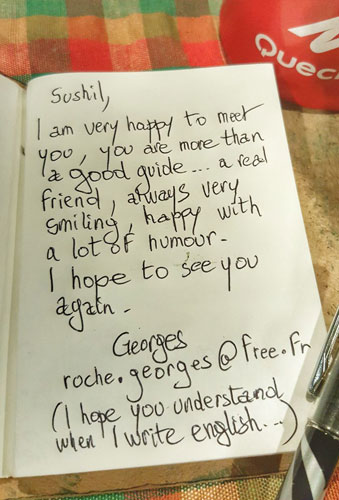 Quec
Sushil,
I am very happy to meet
you, you are more than
a good guide... a real
friend, always very
smiling, happy with
a lot of humour -
I hope to see you
again -
Georges
roche.georges@free.fr
(I hope you understand
when I write english...)